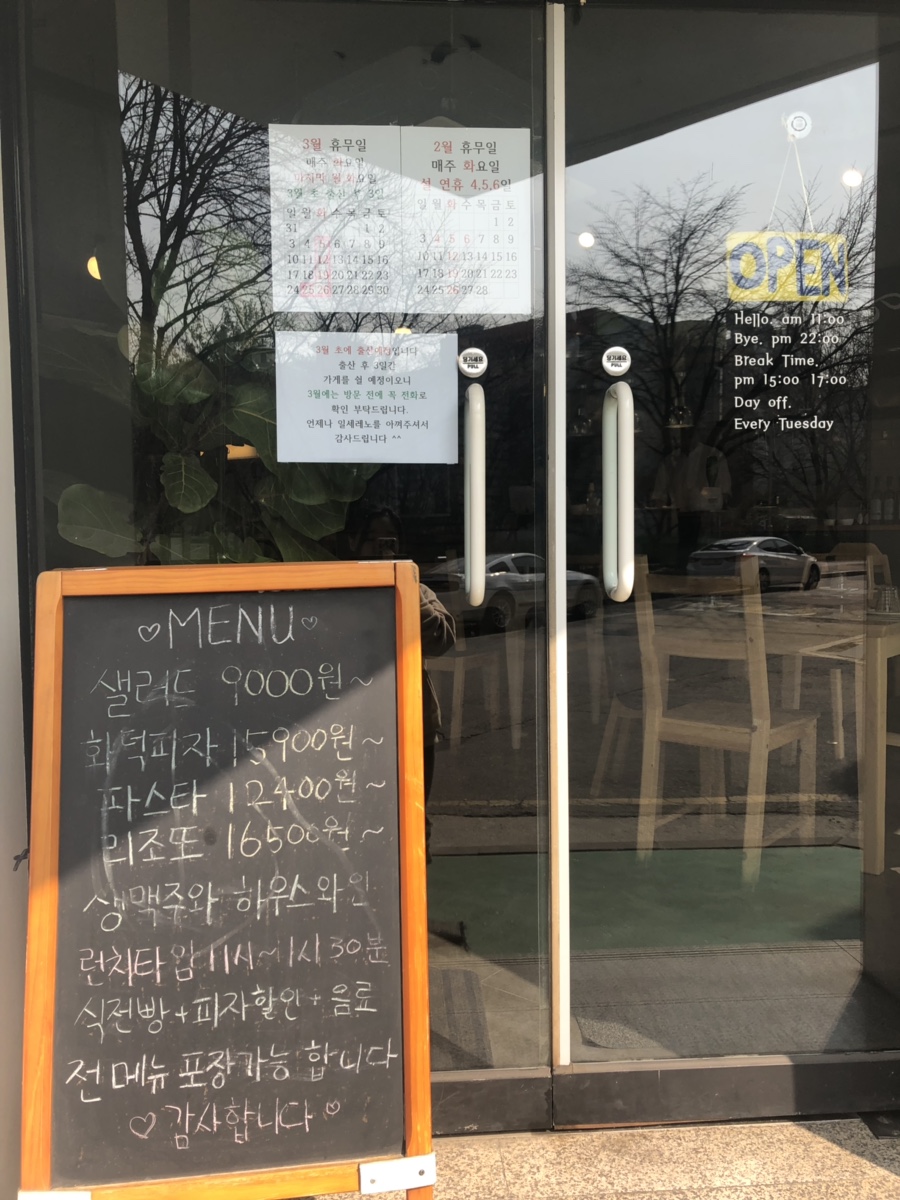 3월 휴무일
매주 화요일
마지막 월 화요일
3월 초 출산 후 3일
일 월 화 수 목 금 토
31 1 2
3 4 5 6 7 8 9
10 11 12 13 14 15 16
17 18 19 20 21 22 23
24 25 26 27 28 29 30
2월 휴무일
매주 화요일
설 연휴 4.5.6일
일 월 화 수 목 금 토
1 2
3 4 5 6 7 8 9
10 11 12 13 14 15 16
17 18 19 20 21 22 23
24 25 26 27 28
3월 초에 출산예정입니다
출산 후 3일간
가게를 쉴 예정이오니
3월에는 방문 전에 꼭 전화로
확인 부탁드립니다.
언제나 일세레노를 아껴주셔서
감사드립니다 ^^
당기세요
PULL
당기세요
PULL
OPEN
Hello. am 11:00
Bye. pm 22:00
Break Time.
pm 15:00 17:00
Day off.
Every Tuesday
♡MENU♡
샐러드 9000원~
화덕피자 15900원~
파스타 12400원~
리조또 16500원~
생맥주와 하우스와인
런치타임 11시~1시30분
식전빵+피자할인+음료
전메뉴 포장가능 합니다
♡감사합니다♡